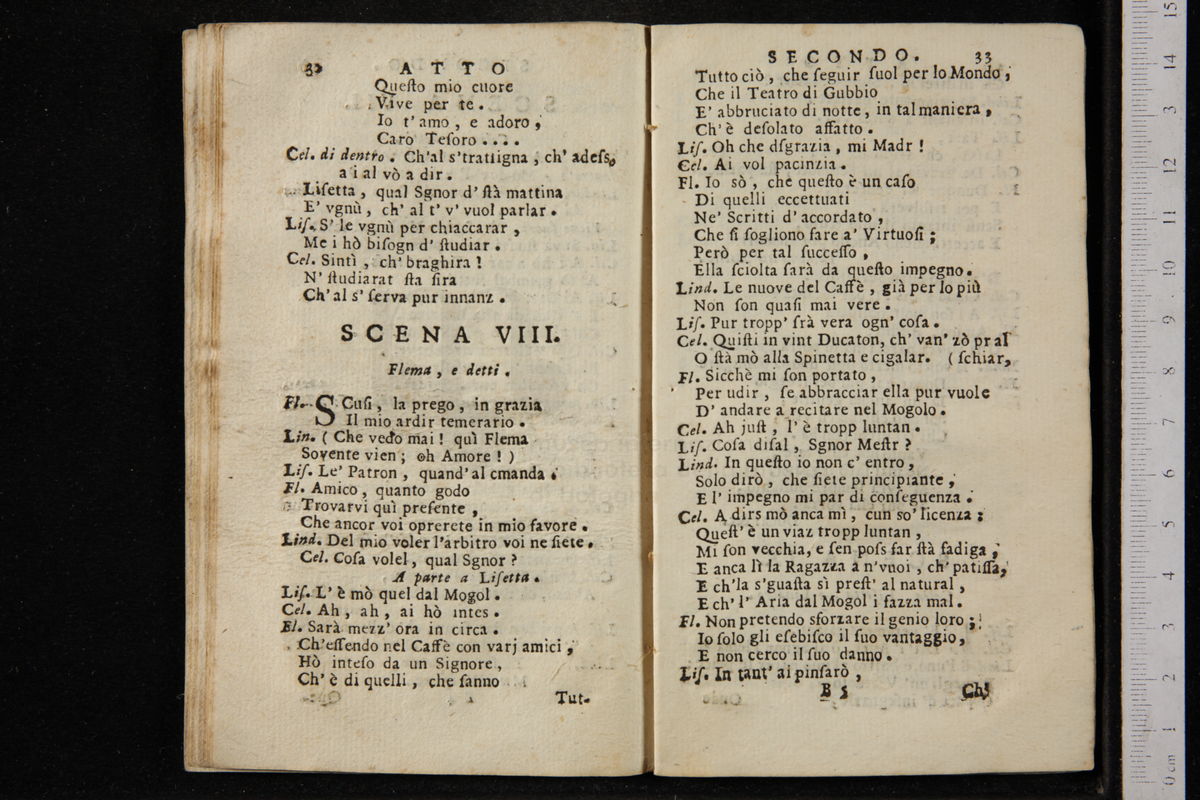 32 ATTO
Queſto mio cuore
Vive per te.
Io t'amo, e adoro,
Caro Teſoro....
Cel. di dentro. Ch'al s'trattigna, ch' adeſs
a i al vò a dir.
Liſetta, qual Sgnor d' ſtà mattina
E' vgnù, ch' al t' v' vuol parlar.
Liſ. S' le vgnù per chiaccarar,
Me i hò biſogn d' ſtudiar.
Cel. Sintì, ch' braghira!
N' ſtudiarat ſta ſira
Ch'al s' ſerva pur innanz.
SCENA VIII.
Flema, e detti.
Fl. SCuſi, la prego, in grazia
Il mio ardir temerario.
Lin. (Che vedo mai! quì Flema
Sovente vien; oh Amore!)
Liſ. Le' Patron, quand'al cmanda.
Fl. Amico, quanto godo
Trovarvi quì preſente,
Che ancor voi oprerete in mio favore.
Lind. Del mio voler l'arbitro voi ne ſiete.
Cel. Coſa volel, qual Sgnor?
A parte a Liſetta.
Liſ. L' è mò quel dal Mogol.
Cel. Ah, ah, ai hò intes.
Fl. Sarà mezz' ora in circa.
Ch'eſſendo nel Caffè con varj amici,
Hò inteſo da un Signore,
Ch' è di quelli, che fanno
Tut-
SECONDO. 33
Tutto ciò, che ſeguir ſuol per lo Mondo,
Che il Teatro di Gubbio
E' abbruciato di notte, in tal maniera,
Ch' è deſolato affatto.
Liſ. Oh che dſgrazia, mi Madr!
Cel. Ai vol pacinzia.
Fl. Io sò, che queſto è un caſo
Di quelli eccettuati
Ne' Scritti d' accordato,
Che ſi ſogliono fare a' Virtuoſi;
Però per tal ſucceſſo,
Ella ſciolta ſarà da queſto impegno.
Lind. Le nuove del Caffè, già per lo più
Non ſon quaſi mai vere.
Liſ. Pur tropp' ſrà vera ogn' coſa.
Cel. Quiſti in vint Ducaton, ch' van' zò pr al
O ſtà mò alla Spinetta e cigalar. (ſchiar,
Fl. Sicchè mi ſon portato,
Per udir, ſe abbracciar ella pur vuole
D' andare a recitare nel Mogolo.
Cel. Ah juſt, l' è tropp luntan.
Liſ. Coſa diſal, Sgnor Meſtr?
Lind. In queſto io non c' entro,
Solo dirò, che ſiete principiante,
E l' impegno mi par di conſeguenza.
Cel. A dirs mò anca mì, cun so' licenza:
Queſt' è un viaz tropp luntan,
Mi ſon vecchia, e ſen poſs far ſtà fadiga,
E anca lì la Ragazza a n'vuoi, ch' patiſſa,
E ch'la s'guaſta sì preſt' al natural,
E ch' l' Aria dal Mogol i fazza mal.
Fl. Non pretendo sforzare il genio loro;
Io ſolo gli eſebiſco il ſuo vantaggio,
E non cerco il ſuo danno.
Liſ. In tant' ai pinſarò,
B 5 Ch'